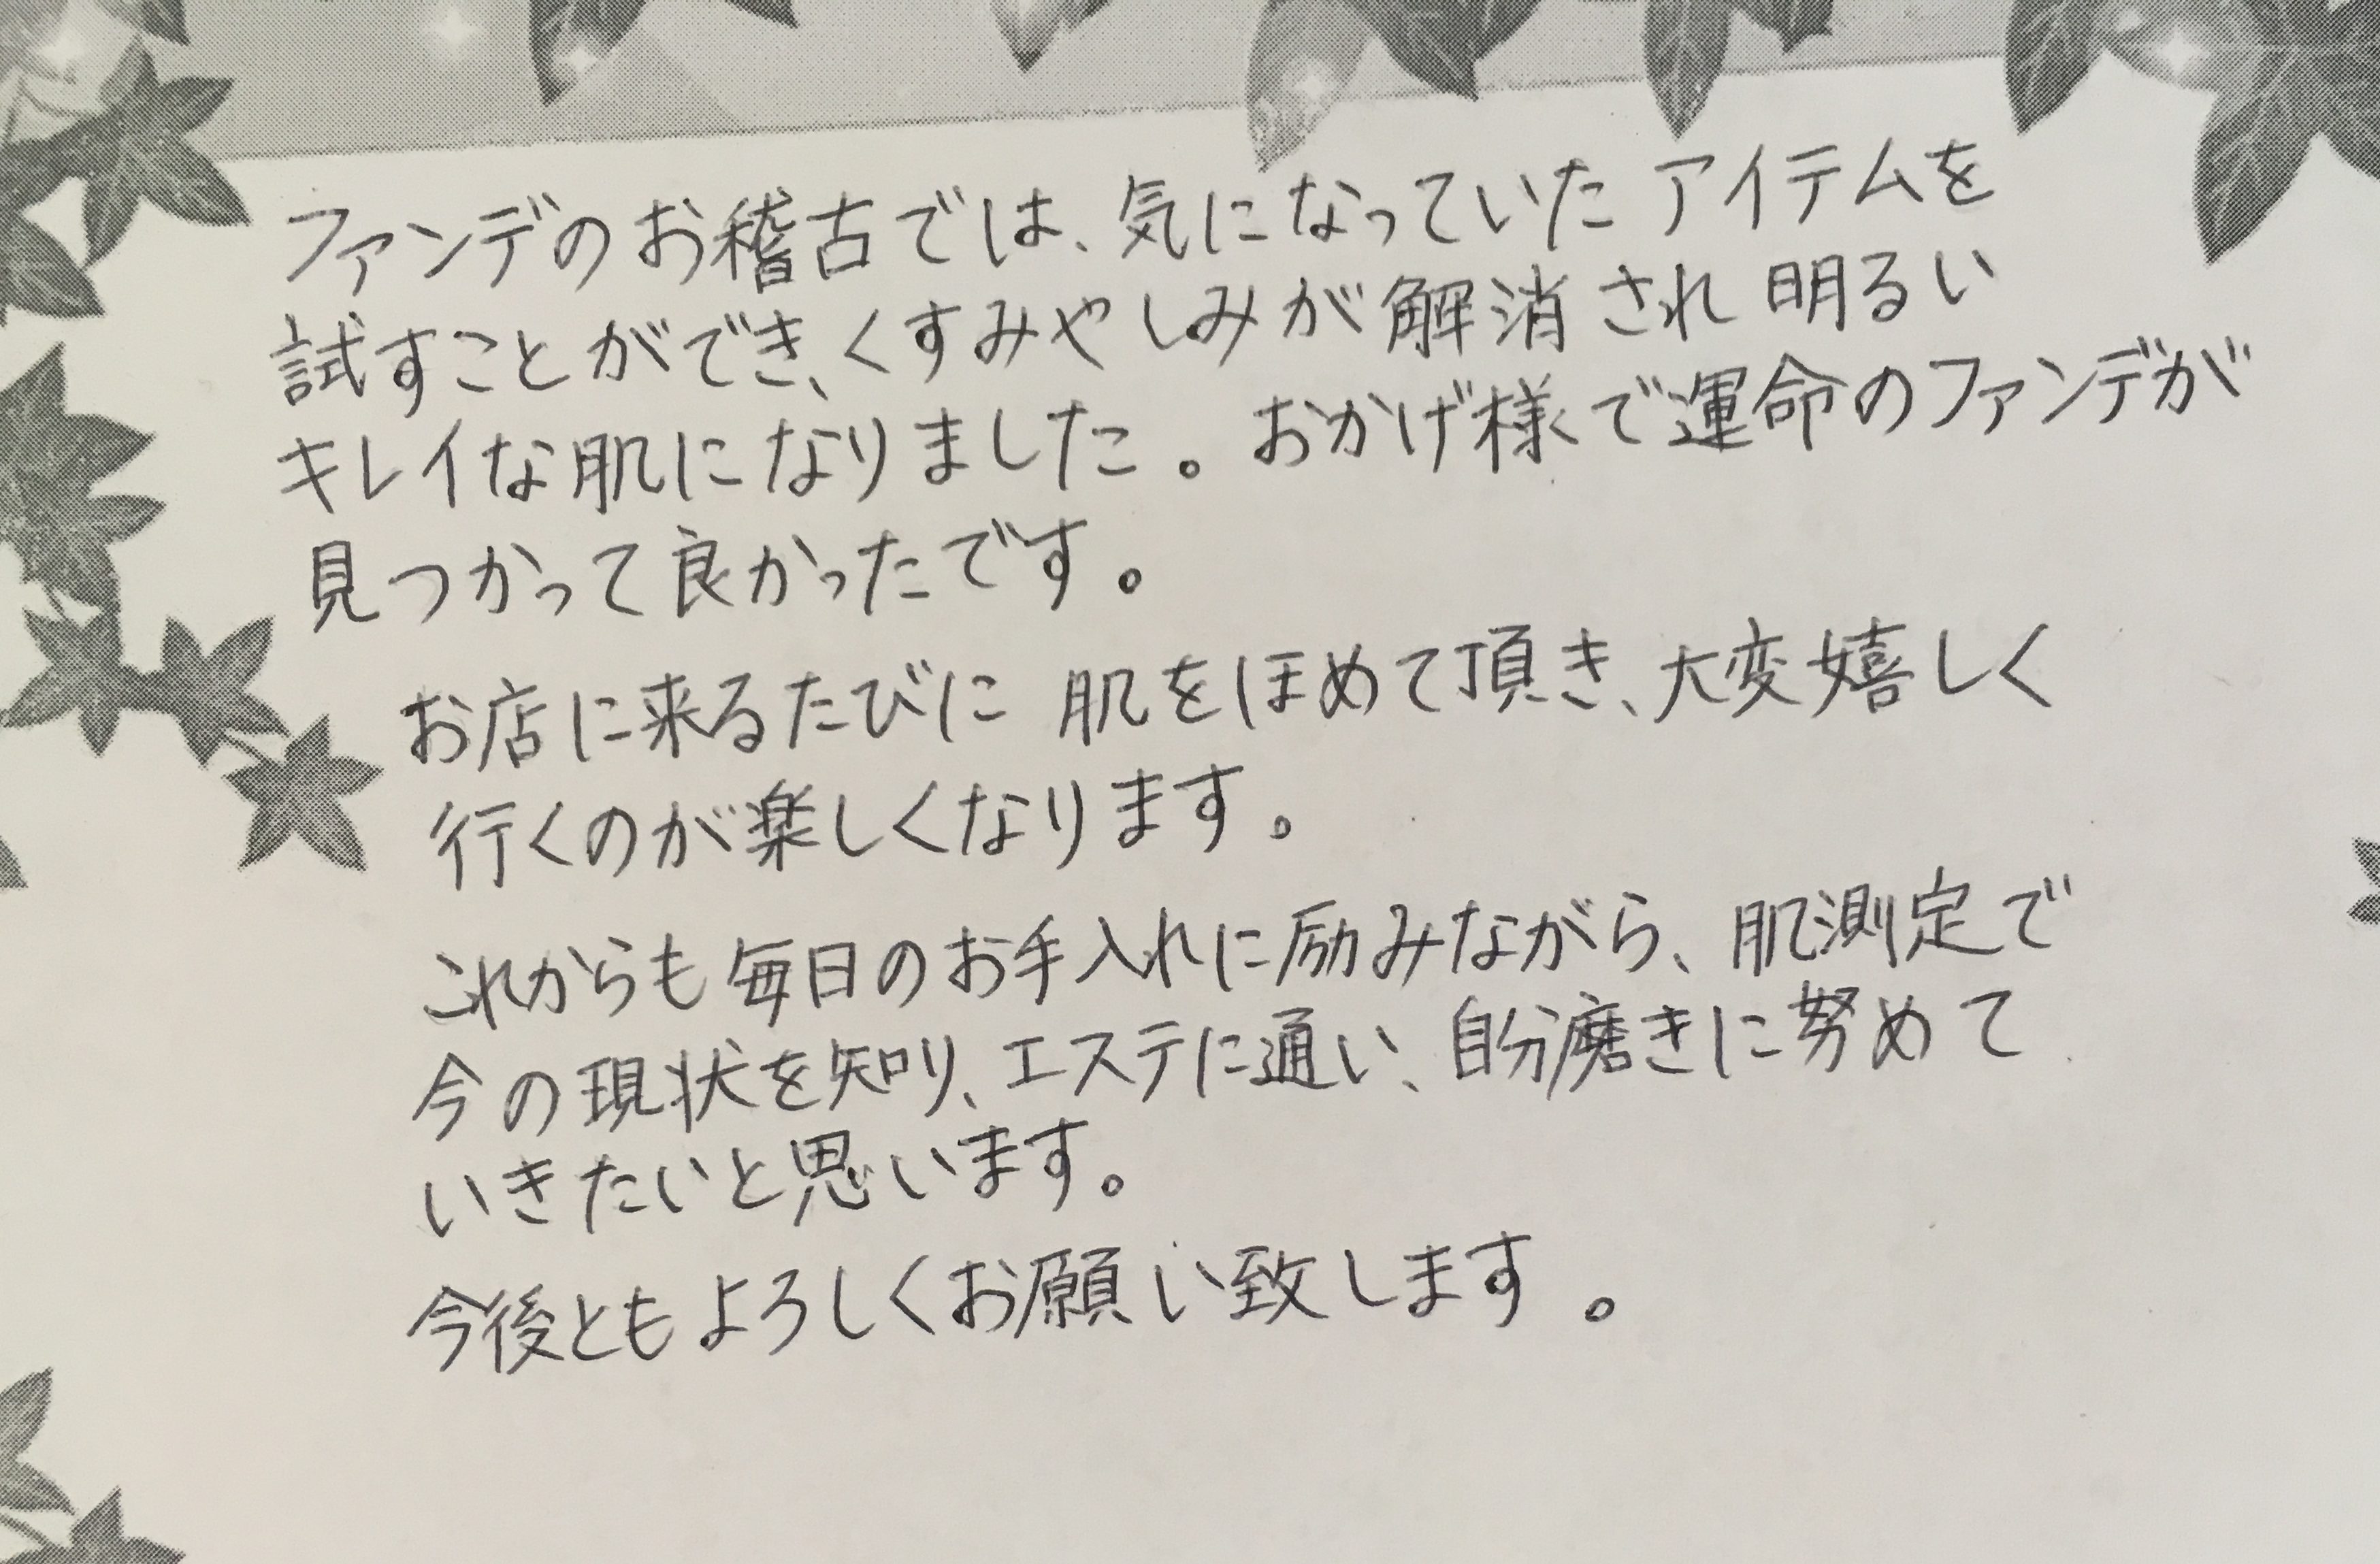 ファンデのお稽古では、気になっていたアイテムを
試すことができ、くすみやしみが解消され明るい
キレイな肌になりました。おかげ様で運命のファンデが
見つかって良かったです。
お店に来るたびに肌をほめて頂き、大変嬉しく
行くのが楽しくなります。
これからも毎日のお手入れに励みながら、肌測定で
今の現状を知り、エステに通い、自分磨きに努めて
いきたいと思います。
今後ともよろしくお願い致します。